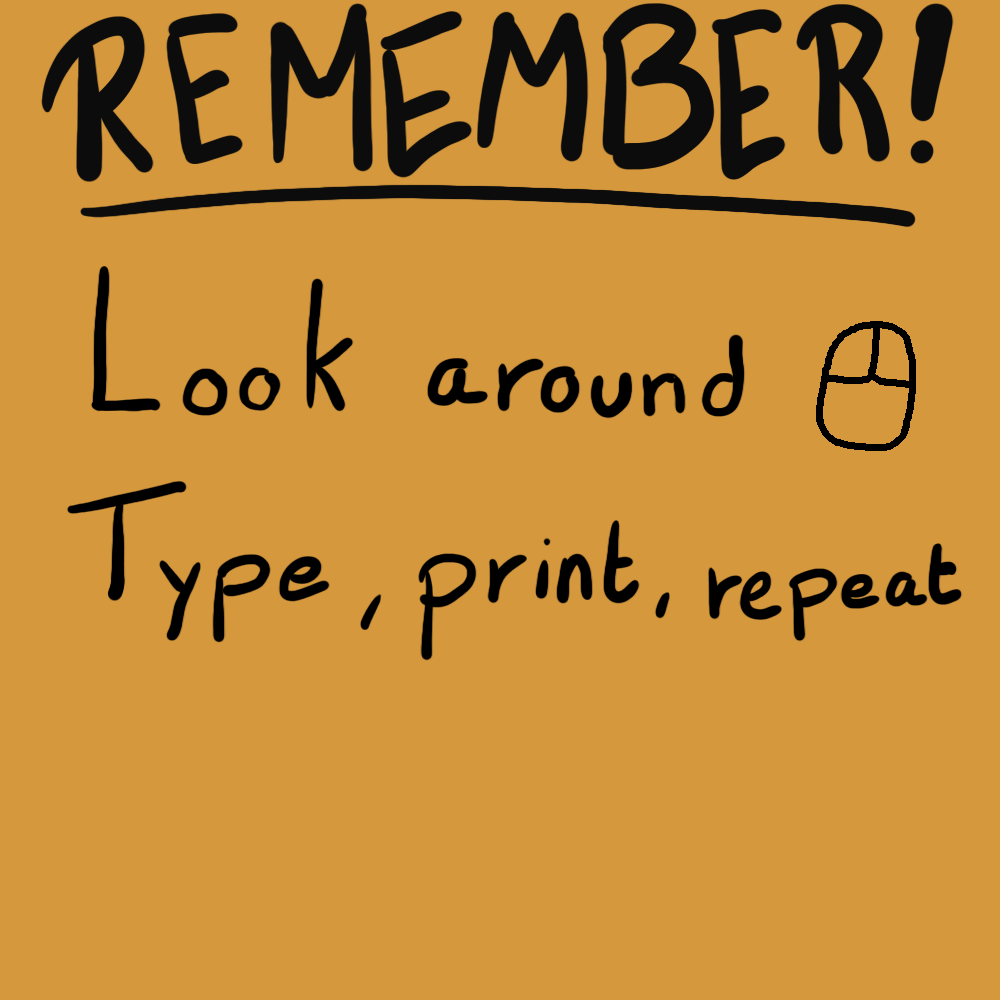 REMEMBER!
Look around
Type, print, repeat